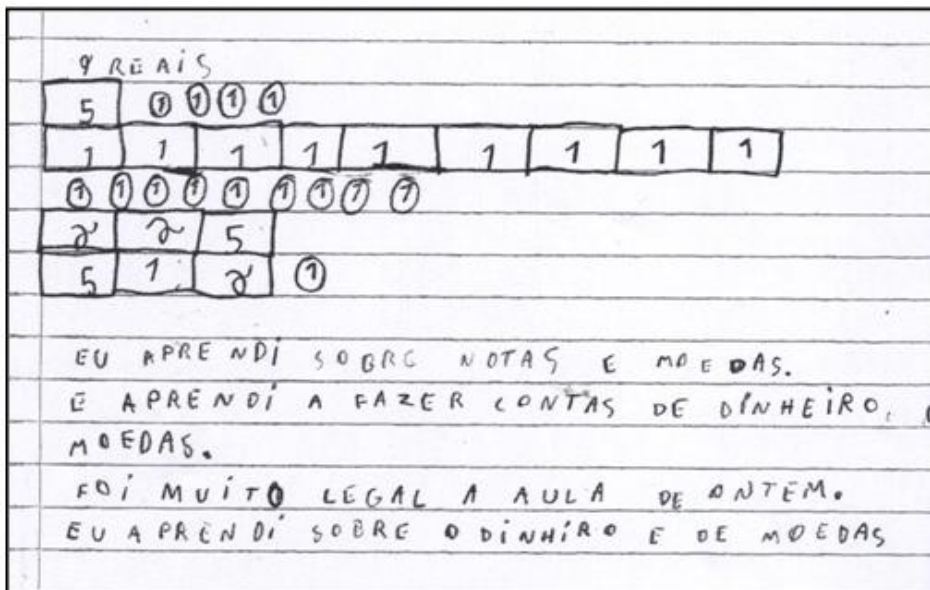 9 REAIS
5 1 1 1 1
1 1 1 1 1 1 1 1 1
1 1 1 1 1 1 1 1 1
2 2 5
5 1 2 1
EU APRENDI SOBRE NOTAS E MOEDAS.
E APRENDI A FAZER CONTAS DE DINHEIRO,
MOEDAS.
FOI MUITO LEGAL A AULA DE ONTEM.
EU APRENDI SOBRE O DINHIRO E DE MOEDAS